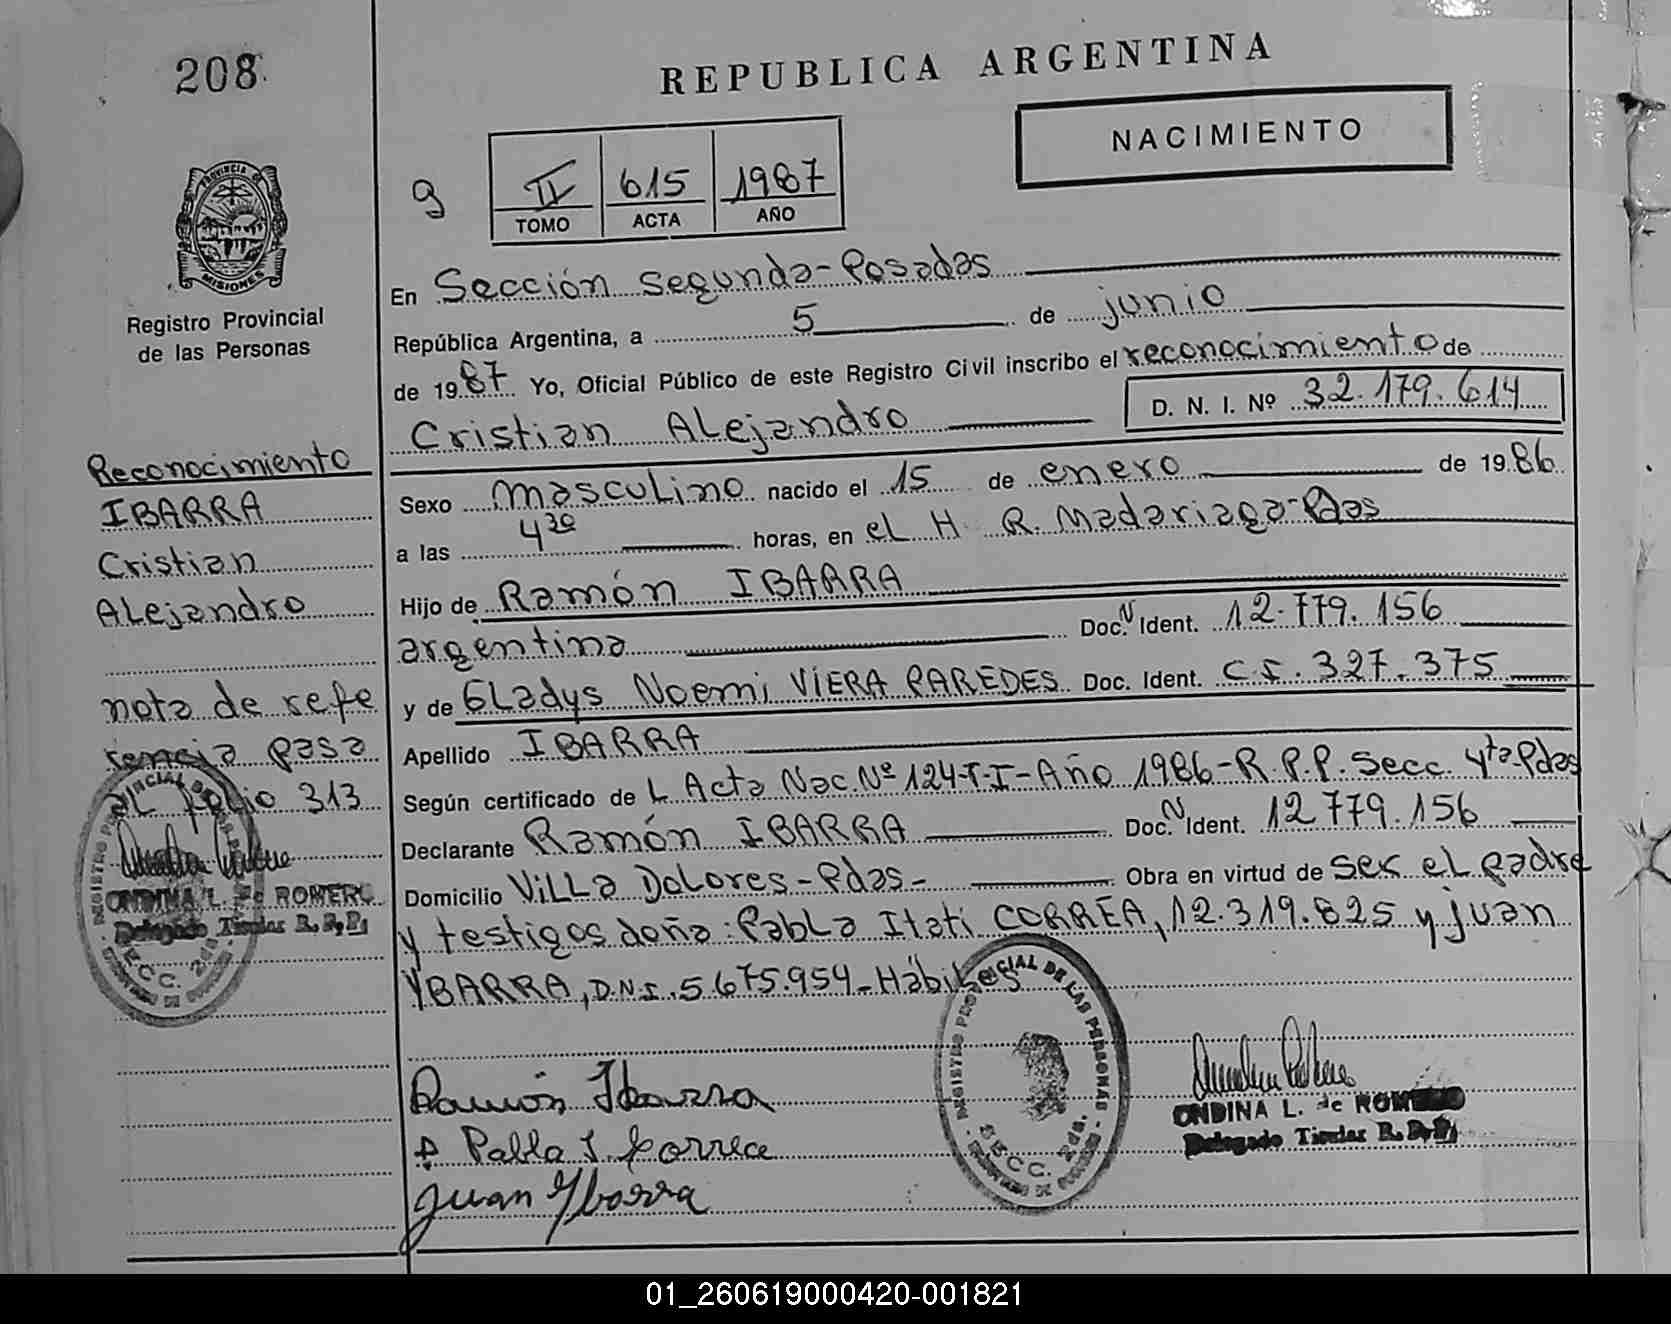 208
REPUBLICA ARGENTINA
NACIMIENTO
g
II 615 1987
TOMO ACTA AÑO
PROVINCIA DE
MISIONES
Registro Provincial
de las Personas
En Sección Segunda-Posadas
República Argentina, a 5 de junio
de 1987 Yo, Oficial Público de este Registro Civil inscribo el reconocimiento de
Cristian Alejandro D. N. I. Nº 32.179.614
Sexo masculino nacido el 15 de enero de 1986
a las 4 30 horas, en el H. R. Madariaga-Pdas
Hijo de Ramón IBARRA
argentina Doc. N Ident. 12.779.156
y de Gladys Noemi VIERA PAREDES Doc. Ident. C.I. 327.375
Apellido IBARRA
Según certificado de L Acta Nac. Nº 124-T-I-Año 1986-R.P.P. Secc. 4ta Pdas
Declarante Ramón IBARRA Doc. N Ident. 12.779.156
Domicilio Villa Dolores-Pdas- Obra en virtud de ser el padre
y testigos doña: Pabla Itati CORREA, 12.319.825 y juan
YBARRA, D.N.I. 5.675.954-Hábiles
Reconocimiento
IBARRA
Cristian
Alejandro
nota de refe
rencia pasa
al folio 313
ONDINA L. de ROMERO
Delegado Titular R.P.P.
REGISTRO PROVINCIAL DE LAS PERSONAS
SECC. 2da.
Ramón Ibarra
Pabla I. Correa
Juan Ybarra
REGISTRO PROVINCIAL DE LAS PERSONAS
SECC. 2da.
ONDINA L. de ROMERO
Delegado Titular R.P.P.
01_260619000420-001821